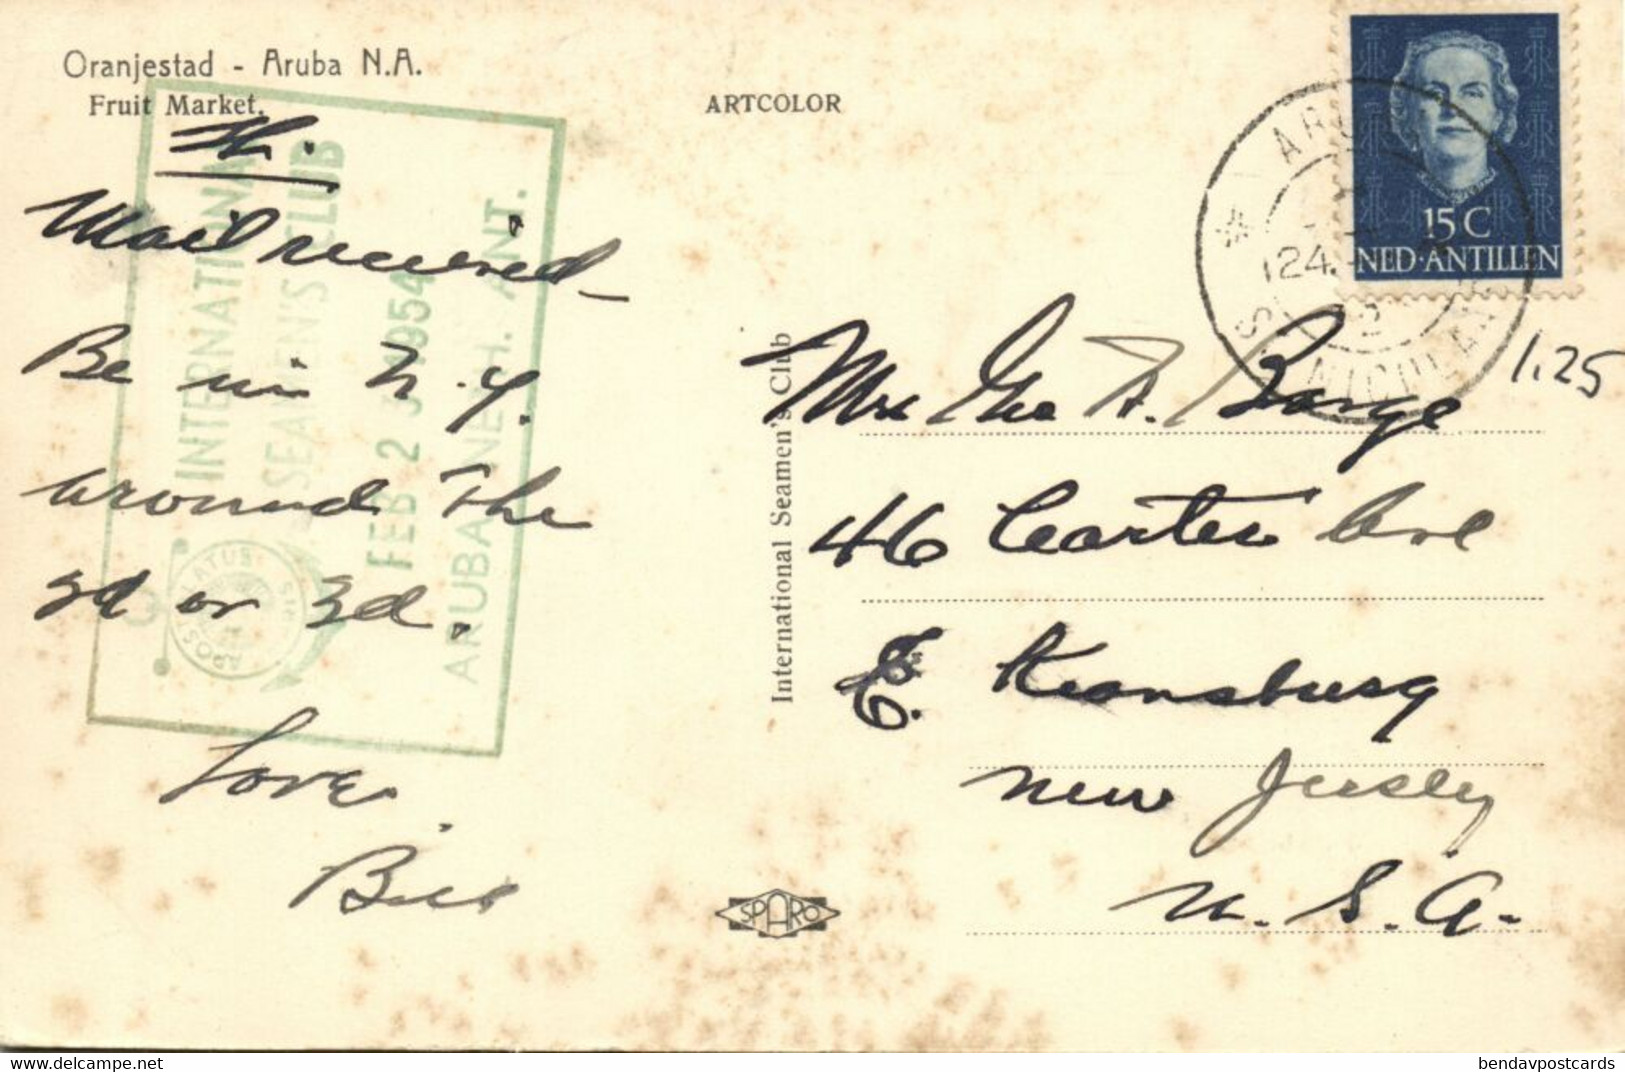 Oranjestad - Aruba N.A.
Fruit Market.
ARTCOLOR
Th.
Mail received -
Be in N.Y.
around the
2d or 3d.
Love.
Bill
INTERNATIONAL
SEAMEN'S CLUB
FEB 2 1954
ARUBA NETH. ANT.
APOSTOLATUS
International Seamen's Club
SPARO
15 C
NED·ANTILLEN
ARUBA
24.
2
S NICOLAAS
1.25
Mrs Geo A.
46 Carter Ave
E. Keansburg
New Jersey
U.S.A.
delcampe.net
bendavpostcards